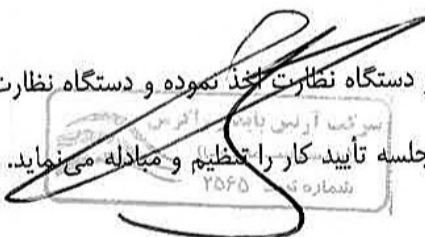 دستگاه نظارت اخذ نموده و دستگاه نظارت
جلسه تأیید کار را تنظیم و مبادله می‌نماید.
شماره ثبت ۲۵۶۵